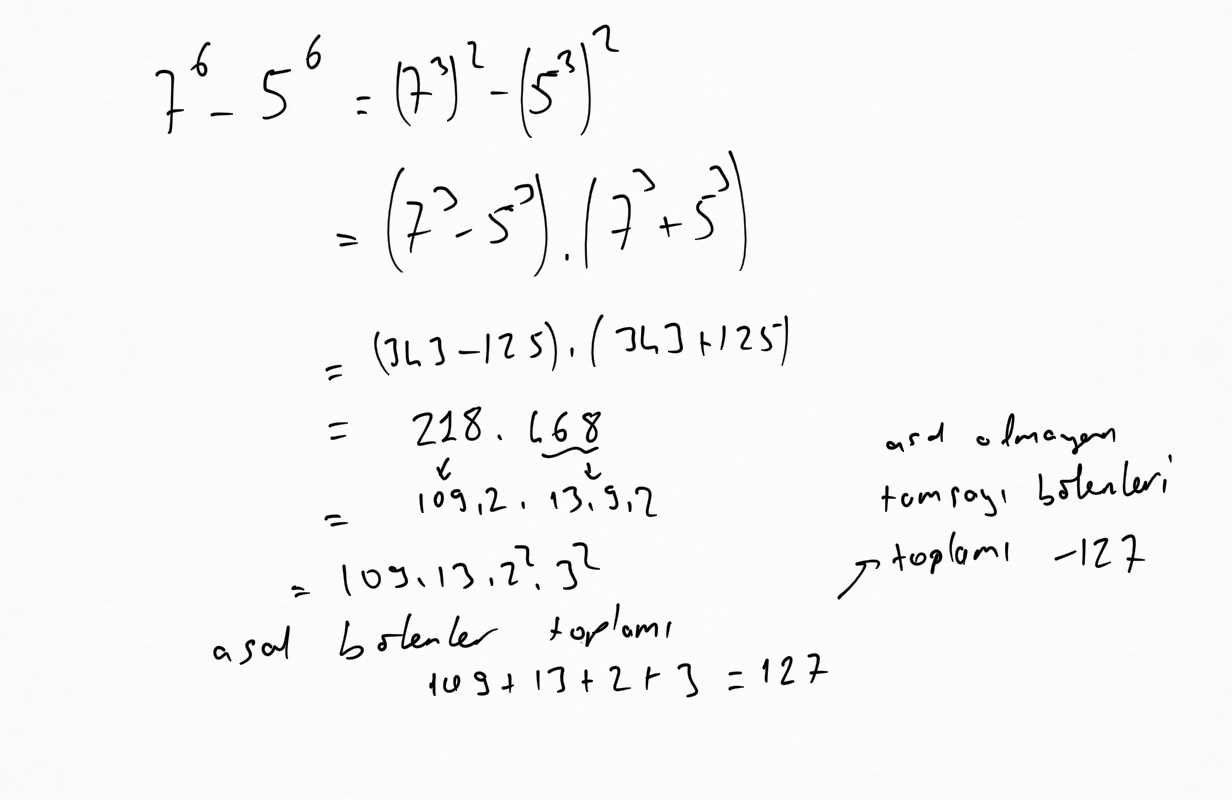 7⁶ - 5⁶ = (7³)² - (5³)²
= (7³ - 5³) . (7³ + 5³)
= (343 - 125) . (343 + 125)
= 218 . 468
= 109.2 . 13.9.2
= 109.13.2².3²
asal bölenler toplamı
109 + 13 + 2 + 3 = 127
asal olmayan
tamsayı bölenleri
toplamı -127